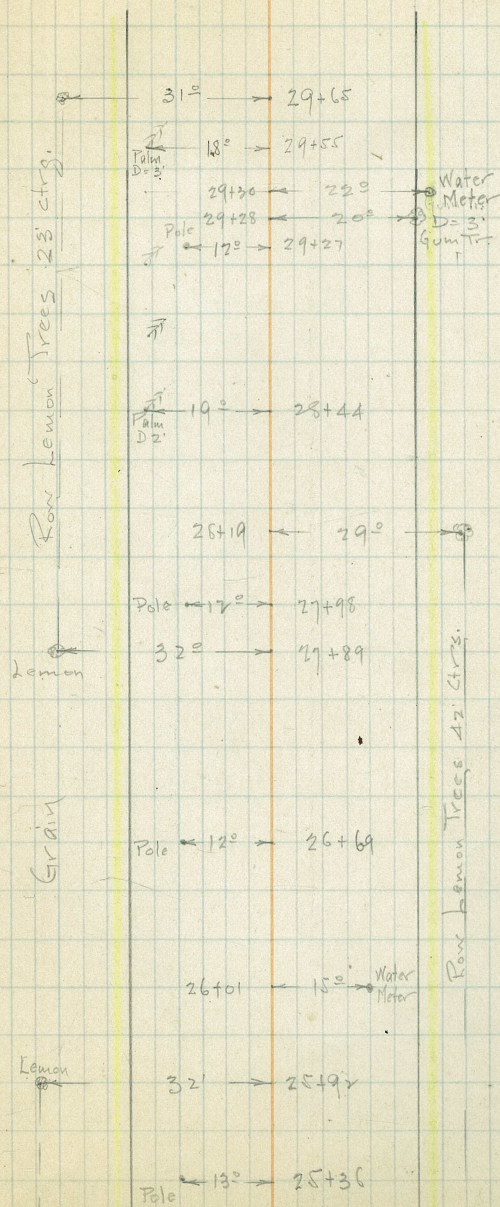 31º 29+65
18º 29+55
Palm
D=3'
29+30 22º Water
Meter
29+28 20º D=3'
Gum Tr.
Pole
12º 29+27
Row Lemon Trees 25' ctrg.
19º 28+44
Palm
D 2'
28+19 29º
Pole 12º 27+98
32º 27+89
Lemon
Row Lemon Trees 42' Ctrs.
Grain
Pole 12º 26+69
26+01 15º Water
Meter
Lemon
32' 25+92
13º 25+36
Pole